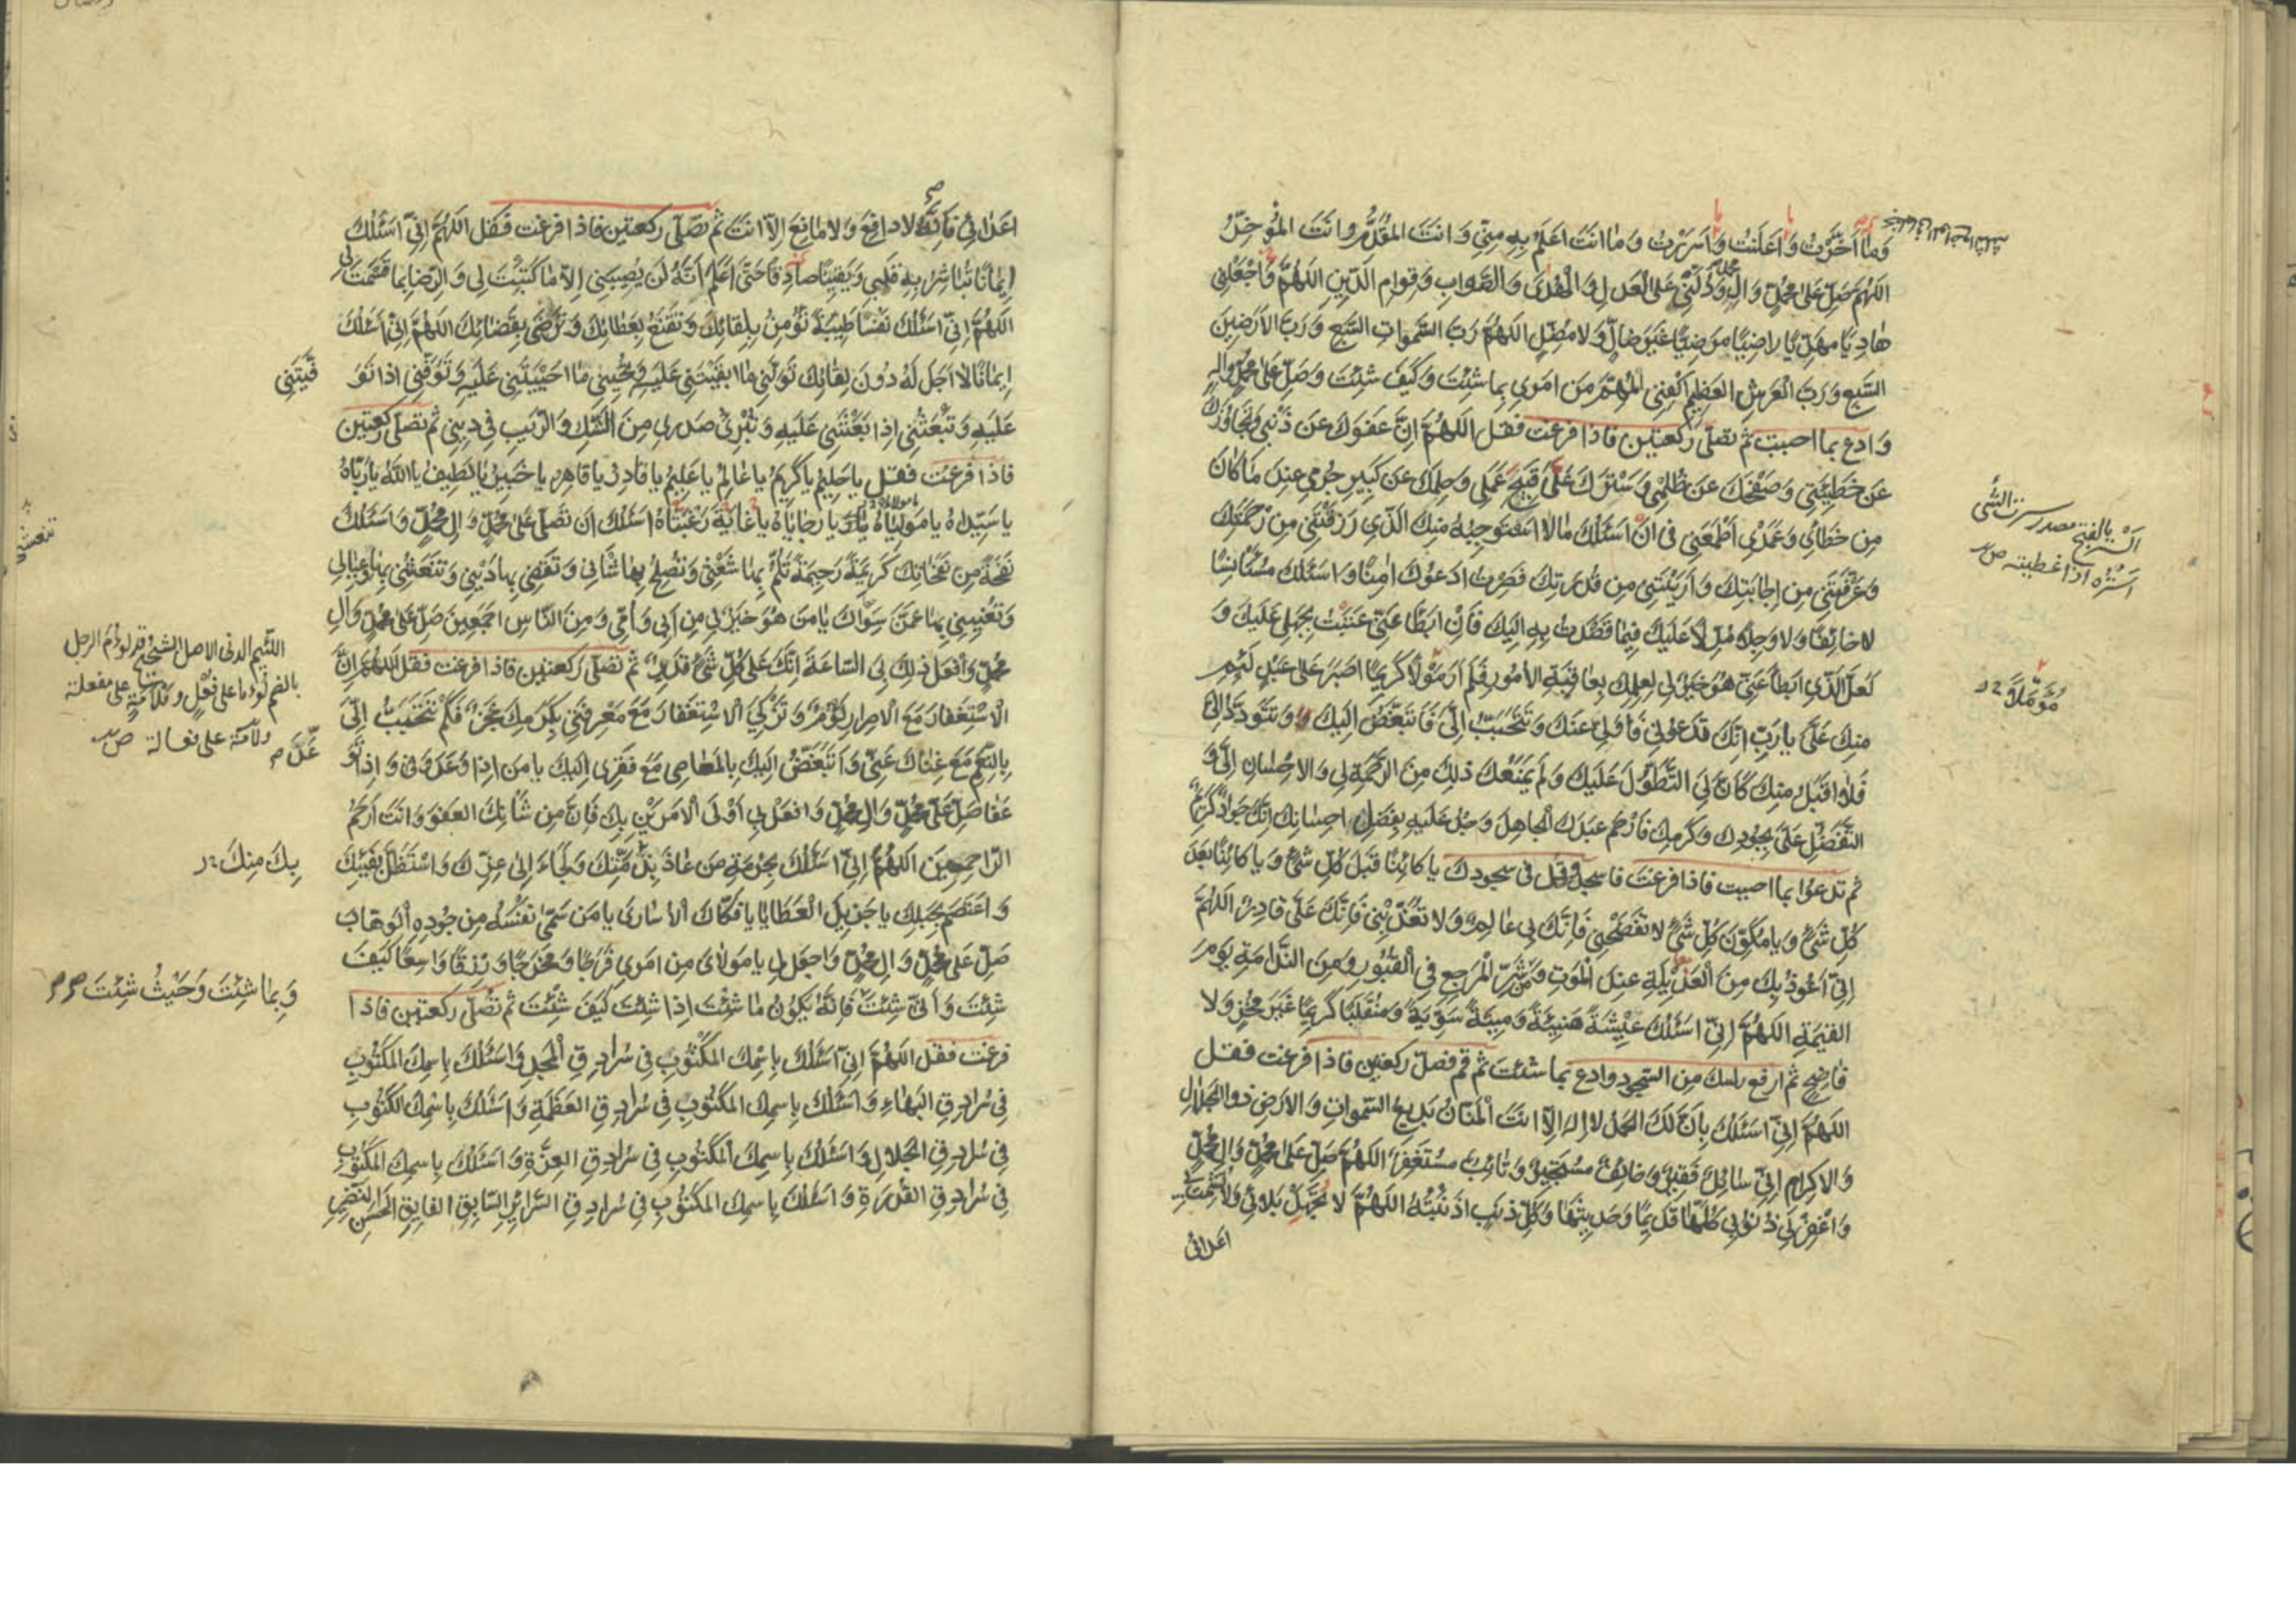 وَمٰا اَخَّرْتُ وَاَعْلَنْتُ وَاَسْرَرْتُ وَمٰا اَنْتَ اَعْلَمُ بِهِ مِنّي وَاَنْتَ المُقَدِّمُ وَاَنْتَ المُؤَخِّرُ
اللّهُمَّ صَلِّ عَلىٰ مُحَمَّدٍ وَالِ مُحَمَّدٍ وَدُلَّني عَلَى العَدْلِ وَالْهُدىٰ وَالصَّوابِ وَقِوامِ الدّينِ اللّهُمَّ وَاجْعَلْني
هٰادِيًا مَهْدِيًّا رٰاضِيًا مَرْضِيًّا غَيْرَ ضٰالٍّ وَلا مُضِلٍّ اللّهُمَّ رَبَّ السَّمواتِ السَّبْعِ وَرَبَّ الاَرَضينَ
السَّبْعِ وَرَبَّ الْعَرْشِ العَظيمِ اكْفِني المُهِمَّ مِنْ اَمْري بِما شِئْتَ وَكَيْفَ شِئْتَ وَصَلِّ عَلىٰ مُحَمَّدٍ وَالِهِ
وَادع بما احببت ثم تصلّي ركعتين فاذا فرغت فقل اللّهُمَّ اِنَّ عَفْوَكَ عَنْ ذَنْبي وَتَجاوُزَكَ
عَنْ خَطيئَتي وَصَفْحَكَ عَنْ ظُلْمي وَسَتْرَكَ عَلىٰ قَبيحِ عَمَلي وَحِلْمَكَ عَنْ كَبيرِ جُرْمي عِنْدَ مٰا كٰانَ
مِنْ خَطَائي وَعَمْدي اَطْمَعَني في اَنْ اَسْئَلَكَ مٰا لا اَسْتَوْجِبُهُ مِنْكَ الَّذي رَزَقْتَني مِنْ رَحْمَتِكَ
وَعَرَّفْتَني مِنْ اِجٰابَتِكَ وَاَرَيْتَني مِنْ قُدْرَتِكَ فَصِرْتُ اَدْعُوكَ اٰمِنًا وَاَسْئَلُكَ مُسْتَأْنِسًا
لا خائِفًا وَلا وَجِلًا مُدِلًّا عَلَيْكَ فيما قَصَدْتُ بِهِ اِلَيْكَ فَاِنْ اَبْطَأ عَنّي عَتَبْتُ بِجَهْلي عَلَيْكَ وَ
لَعَلَّ الَّذي اَبْطَأ عَنّي هُوَ خَيْرٌ لي لِعِلْمِكَ بِعاقِبَةِ الاُمُورِ فَلَمْ اَرَ مَوْلًا كَريمًا اَصْبَرَ عَلىٰ عَبْدٍ لَئيمٍ
مِنْكَ عَلَيَّ يا رَبِّ اِنَّكَ تَدْعُوني فَاُوَلّي عَنْكَ وَتَتَحَبَّبُ اِلَيَّ فَاَتَبَغَّضُ اِلَيْكَ وَتَتَوَدَّدُ اِلَيَّ
فَلا اَقْبَلُ مِنْكَ كَاَنَّ لِيَ التَّطَوُّلَ عَلَيْكَ وَلَمْ يَمْنَعْكَ ذلِكَ مِنَ الرَّحْمَةِ لي وَالاِحْسانِ اِلَيَّ وَ
التَّفَضُّلِ عَلَيَّ بِجُودِكَ وَكَرَمِكَ فَارْحَمْ عَبْدَكَ الْجاهِلَ وَجُدْ عَلَيْهِ بِفَضْلِ اِحْسانِكَ اِنَّكَ جَوادٌ كَريمٌ
ثم تدعوا بما احببت فاذا فرغت فاسجد وقل في سجودك يا كائِنًا قَبْلَ كُلِّ شَيْءٍ وَيا كائِنًا بَعْدَ
كُلِّ شَيْءٍ وَيا مُكَوِّنَ كُلِّ شَيْءٍ لا تَفْضَحْني فَاِنَّكَ بي عالِمٌ وَلا تُعَذِّبْني فَاِنَّكَ عَلَيَّ قادِرٌ اللّهُمَّ
اِنّي اَعُوذُ بِكَ مِنَ العَديلَةِ عِنْدَ الْمَوْتِ وَمِنْ شَرِّ الْمَرْجِعِ في الْقُبُورِ وَمِنَ النَّدامَةِ يَوْمَ
القيٰمَةِ اللّهُمَّ اِنّي اَسْئَلُكَ عيشَةً هَنيئَةً وَميتَةً سَوِيَّةً وَمُنْقَلَبًا كَريمًا غَيْرَ مُخْزٍ وَلا
فٰاضِحٍ ثم ارفع راسك من السجود وادع بما شئت ثم قم فصلّ ركعتين فاذا فرغت فقل
اللّهُمَّ اِنّي اَسْئَلُكَ بِاَنَّ لَكَ الحَمْدَ لا اِلهَ اِلّا اَنْتَ الْمَنّانُ بَديعُ السَّمواتِ وَالاَرْضِ ذُو الجَلالِ
وَالاِكْرامِ اِنّي سائِلٌ فَقيرٌ وَخائِفٌ مُسْتَجيرٌ وَتائِبٌ مُسْتَغْفِرٌ اللّهُمَّ صَلِّ عَلىٰ مُحَمَّدٍ وَالِ مُحَمَّدٍ
وَاغْفِرْ لي ذُنُوبي كُلَّها قَديمَها وَحَديثَها وَكُلَّ ذَنْبٍ اَذْنَبْتُهُ اللّهُمَّ لا تُجْهِدْ بَلائي وَلا تُشْمِتْ بي
اعدائي
السَّتر بالفتح مصدر سترت الشئ
استُره اذا غطيته ص
مُؤَمَّلًا
اَعْدائي فَاِنَّهُ لا دافِعَ وَلا مانِعَ اِلّا اَنْتَ ثم تصلّي ركعتين فاذا فرغت فقل اللّهُمَّ اِنّي اَسْئَلُكَ
ايمانًا تُباشِرُ بِهِ قَلْبي وَيَقينًا صادِقًا حَتّى اَعْلَمَ اَنَّهُ لَنْ يُصيبَني اِلّا ما كَتَبْتَ لي وَالرِّضا بِما قَسَمْتَ لي
اللّهُمَّ اِنّي اَسْئَلُكَ نَفْسًا طَيِّبَةً تُؤْمِنُ بِلِقائِكَ وَتَقْنَعُ بِعَطائِكَ وَتَرْضىٰ بِقَضائِكَ اللّهُمَّ اِنّي اَسْئَلُكَ
ايمانًا لا اَجَلَ لَهُ دُونَ لِقائِكَ تَوَلَّني ما اَبْقَيْتَني عَلَيْهِ وَتُحْييني ما اَحْيَيْتَني عَلَيْهِ وَتَوَفَّني اِذا تَوَ
فَّيْتَني
عَلَيْهِ وَتَبْعَثُني اِذا بَعَثْتَني عَلَيْهِ وَتُبْرِئُ صَدْري مِنَ الشَّكِّ وَالرَّيْبِ في ديني ثم تصلّي ركعتين
فاذا فرغت فقل يا حَليمُ يا كَريمُ يا عالِمُ يا عَليمُ يا قادِرُ يا قاهِرُ يا خَبيرُ يا لَطيفُ يا اَللهُ يا رَبّاهُ
يا سَيِّداهُ يا مَوْلَياهُ يا رَجاياهُ يا غايَةَ رَغْبَتاهُ اَسْئَلُكَ اَنْ تُصَلِّيَ عَلىٰ مُحَمَّدٍ وَالِ مُحَمَّدٍ وَاَسْئَلُكَ
نَفْحَةً مِنْ نَفَحاتِكَ كَريمَةً رَحيمَةً تَلُمُّ بِها شَعْثي وَتُصْلِحُ بِها شَأني وَتَقْضي بِها دَيْني وَتَنْعَشُني بِها وَعِيالي
وَتُغْنيني بِها عَمَّنْ سِواكَ يا مَنْ هُوَ خَيْرٌ لي مِنْ اَبي وَاُمّي وَمِنَ النّاسِ اَجْمَعينَ صَلِّ عَلىٰ مُحَمَّدٍ وَالِ
مُحَمَّدٍ وَافْعَلْ ذلِكَ بي السّاعَةَ اِنَّكَ عَلىٰ كُلِّ شَيْءٍ قَديرٌ ثم تصلّي ركعتين فاذا فرغت فقل اللّهُمَّ اِنَّ
الاِسْتِغْفارَ مَعَ الاِصْرارِ لُؤْمٌ وَتَرْكِيَ الاِسْتِغْفارَ مَعَ مَعْرِفَتي بِكَرَمِكَ عَجْزٌ فَكَمْ تَتَحَبَّبُ اِلَيَّ
بِالنِّعَمِ مَعَ غِناكَ عَنّي وَاَتَبَغَّضُ اِلَيْكَ بِالمَعاصي مَعَ فَقْري اِلَيْكَ يا مَنْ اِذا وَعَدَ وَفىٰ وَاِذا تَوَ
عَّدَ
عَفا صَلِّ عَلىٰ مُحَمَّدٍ وَالِ مُحَمَّدٍ وَافْعَلْ بي اَوْلَى الاَمْرَيْنِ بِكَ فَاِنَّ مِنْ شَأنِكَ العَفْوَ وَاَنْتَ اَرْحَمُ
الرّاحِمينَ اللّهُمَّ اِنّي اَسْئَلُكَ بِحُرْمَةِ مَنْ عاذَ بِذِمَّتِكَ وَلَجَأَ اِلىٰ عِزِّكَ وَاسْتَظَلَّ بِفَيْئِكَ
وَاعْتَصَمَ بِحَبْلِكَ يا جَزيلَ الْعَطايا يا فَكّاكَ الاُسارىٰ يا مَنْ سَمّىٰ نَفْسَهُ مِنْ جُودِهِ الْوَهّابَ
صَلِّ عَلىٰ مُحَمَّدٍ وَالِ مُحَمَّدٍ وَاجْعَلْ لي يا مَوْلايَ مِنْ اَمْري فَرَجًا وَمَخْرَجًا وَرِزْقًا واسِعًا كَيْفَ
شِئْتَ وَاَنّىٰ شِئْتَ فَاِنَّهُ يَكُونُ ما شِئْتَ اِذا شِئْتَ كَيْفَ شِئْتَ ثم تصلّي ركعتين فاذا
فرغت فقل اللّهُمَّ اِنّي اَسْئَلُكَ بِاسْمِكَ المَكْتُوبِ في سُرادِقِ الْمَجْدِ وَاَسْئَلُكَ بِاسْمِكَ المَكْتُوبِ
في سُرادِقِ البَهاءِ وَاَسْئَلُكَ بِاسْمِكَ المَكْتُوبِ في سُرادِقِ العَظَمَةِ وَاَسْئَلُكَ بِاسْمِكَ المَكْتُوبِ
في سُرادِقِ الجَلالِ وَاَسْئَلُكَ بِاسْمِكَ المَكْتُوبِ في سُرادِقِ العِزَّةِ وَاَسْئَلُكَ بِاسْمِكَ المَكْتُوبِ
في سُرادِقِ القُدْرَةِ وَاَسْئَلُكَ بِاسْمِكَ المَكْتُوبِ في سُرادِقِ السَّرائِرِ السّابِقِ الفايِقِ الحَسَنِ النَّضِرِ
اللئيم الدني الاصل الشحيح وقد لؤم الرجل
بالضم لؤما على فُعْل ومَلْأمَة على مفعلة
ولآمة على فعالة ص
بِكَ مِنْكَ
وَبِما شِئْتَ وَحَيْثُ شِئْتَ